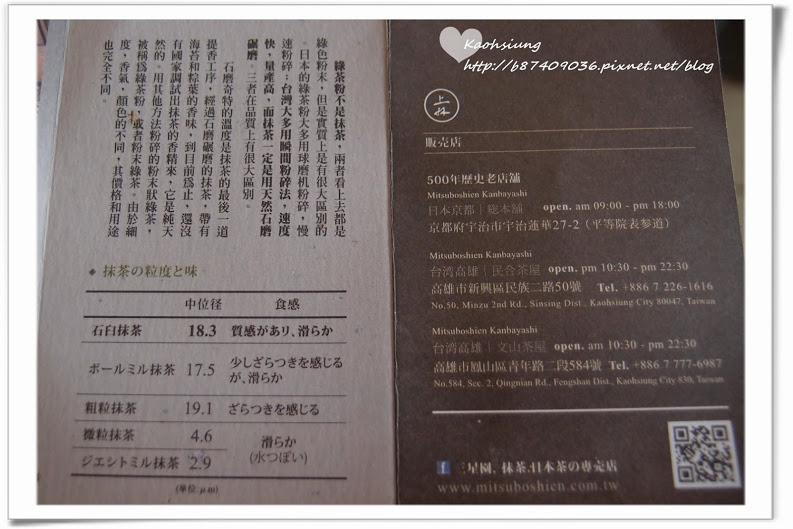 Kaohsiung
http://b87409036.pixnet.net/blog
綠茶粉不是抹茶，兩者看上去都是
綠色粉末，但是實質上是有很大區別的
。日本的綠茶粉大多用球磨机粉碎，慢
速粉碎；台灣大多用瞬間粉碎法，速度
快，量產高，而抹茶一定是用天然石磨
碾磨。三者在品質上有很大區別。
石磨奇特的溫度是抹茶的最後一道
提香工序，經過石磨碾磨的抹茶，帶有
海苔和粽葉的香味，到目前爲止，還沒
有國家調試出抹茶的香精來，它是純天
然的。用其他方法粉碎的粉末狀綠茶，
被稱爲綠茶粉，或者粉末綠茶。由於細
度，香氣，顏色的不同，其價格和用途
也完全不同。
◆ 抹茶の粒度と味
中位径 食感
石臼抹茶 18.3 質感があリ、滑らか
ボールミル抹茶 17.5 少しざらつきを感じる
が、滑らか
粗粒抹茶 19.1 ざらつきを感じる
微粒抹茶 4.6 滑らか
ジエシトミル抹茶 2.9 (水つぽい)
(單位: μm)
上林
販売店
500年歷史老店舖
Mitsuboshien Kanbayashi
日本京都｜總本舖 open. am 09:00 - pm 18:00
京都府宇治市宇治蓮華27-2（平等院表参道）
Mitsuboshien Kanbayashi
台湾高雄｜民合茶屋 open. pm 10:30 - pm 22:30
高雄市新興區民族二路50號 Tel. +886 7 226-1616
No.50, Minzu 2nd Rd., Sinsing Dist., Kaohsiung City 80047, Taiwan
Mitsuboshien Kanbayashi
台湾高雄｜文山茶屋 open. am 10:30 - pm 22:30
高雄市鳳山區青年路二段584號 Tel. +886 7 777-6987
No.584, Sec. 2, Qingnian Rd., Fengshan Dist., Kaohsiung City 830, Taiwan
f 三星園．抹茶．日本茶の専売店
www.mitsuboshien.com.tw